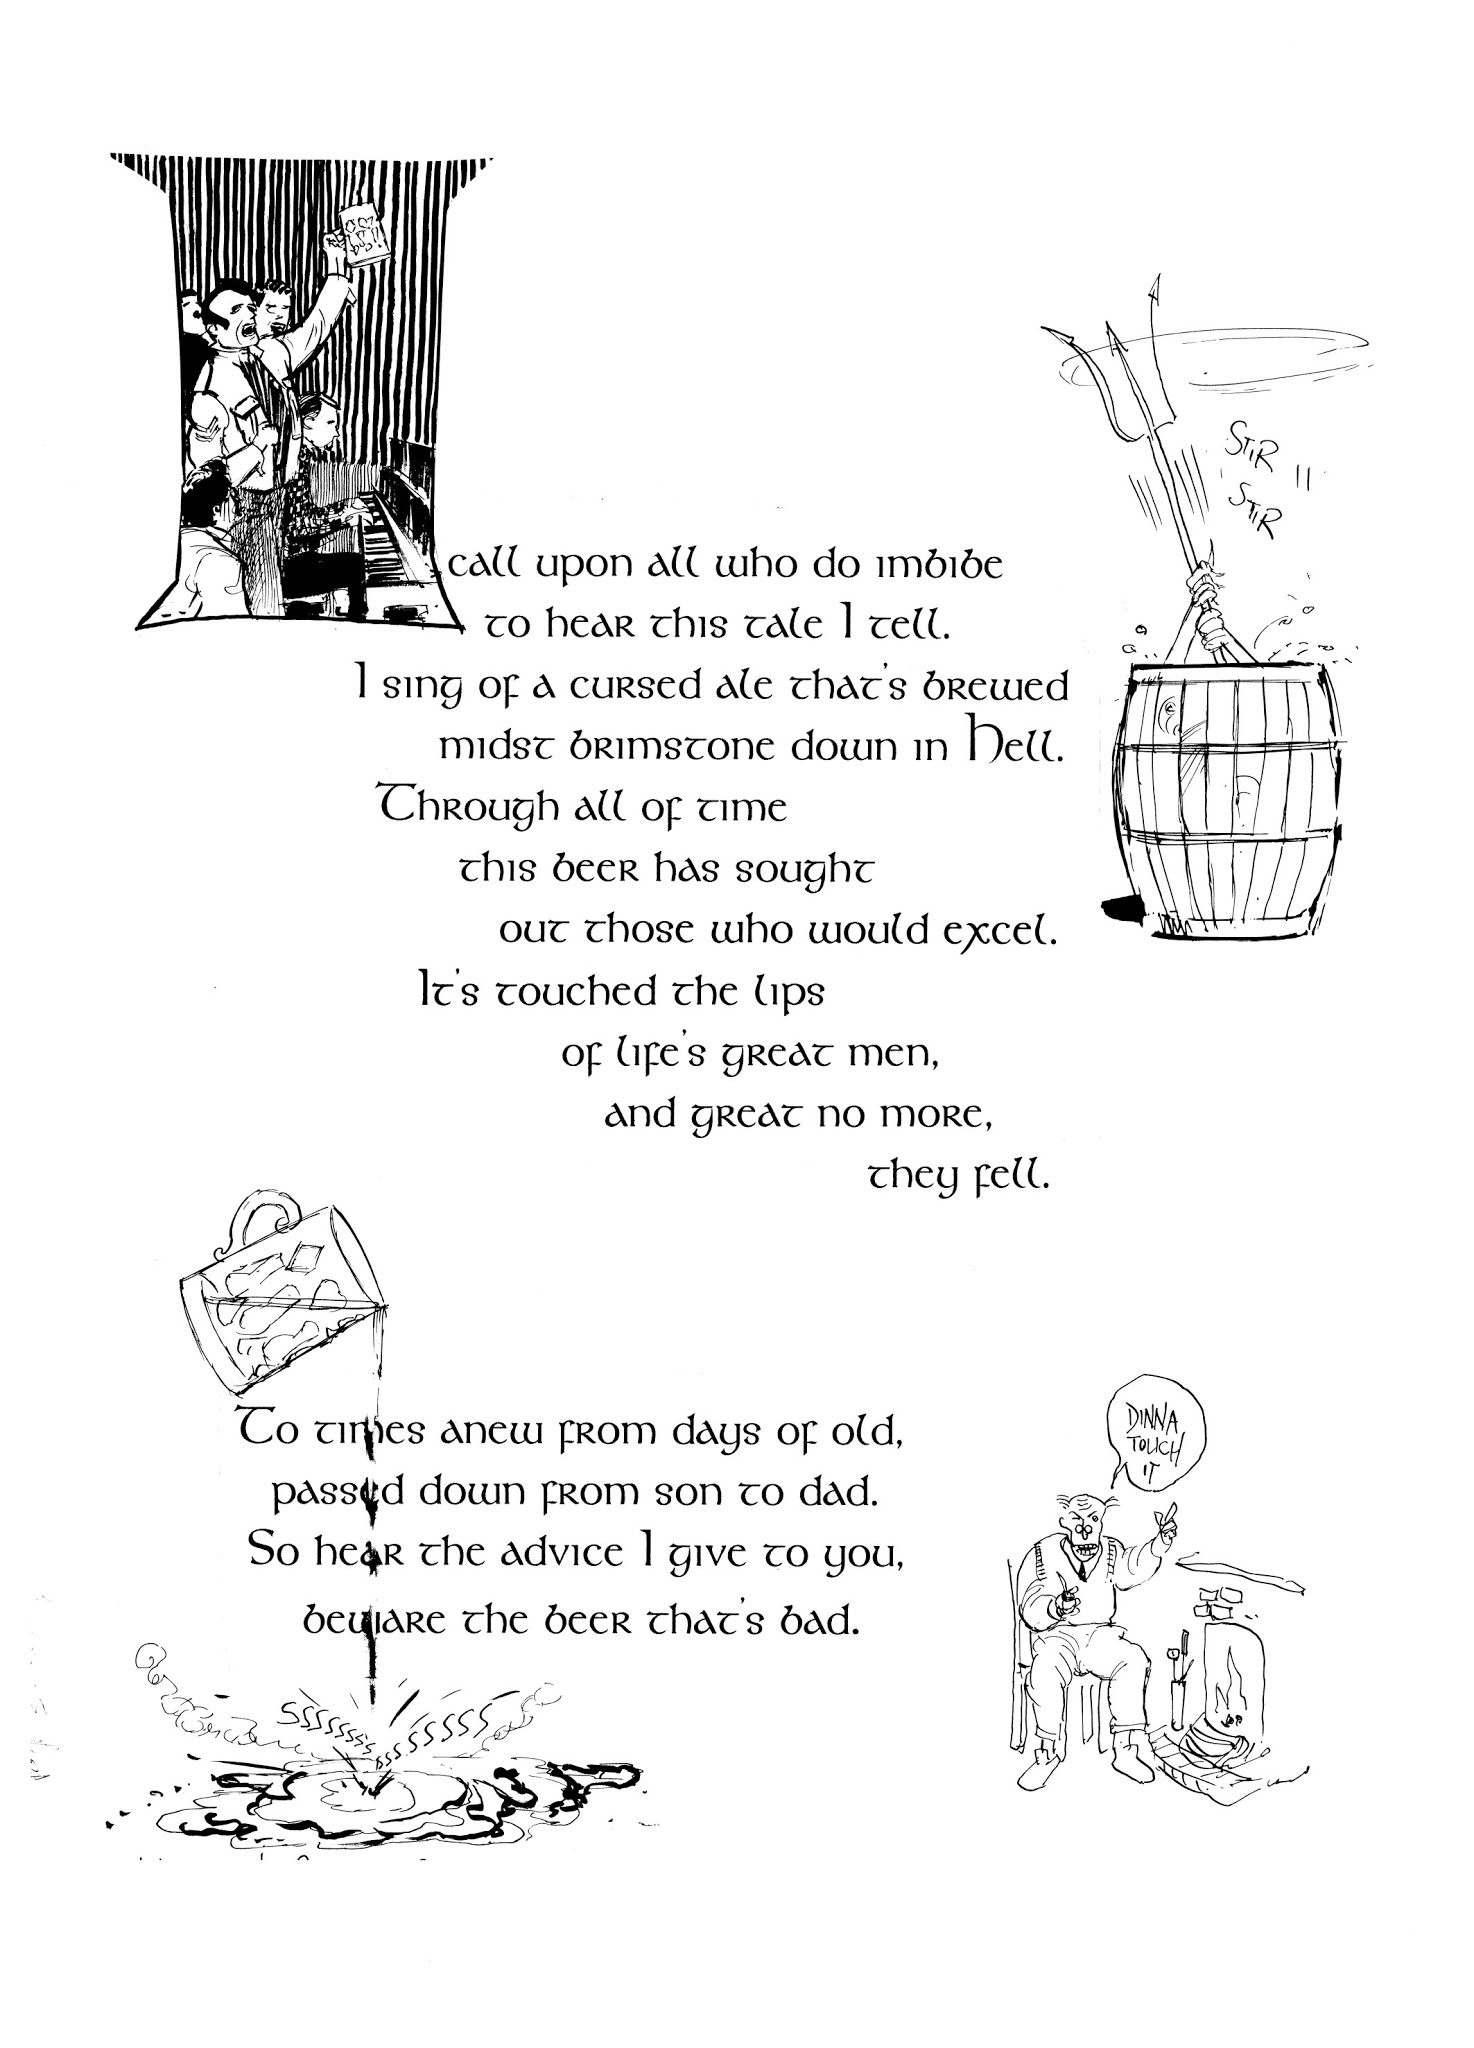 I call upon all who do imbibe
to hear this tale I tell.
I sing of a cursed ale that's brewed
midst brimstone down in Hell.
Through all of time
this beer has sought
out those who would excel.
It's touched the lips
of life's great men,
and great no more,
they fell.
STIR
STIR
To times anew from days of old,
passed down from son to dad.
So hear the advice I give to you,
beware the beer that's bad.
DINNA
TOUCH
IT
SSSSSSSSS
SSSSSSSS